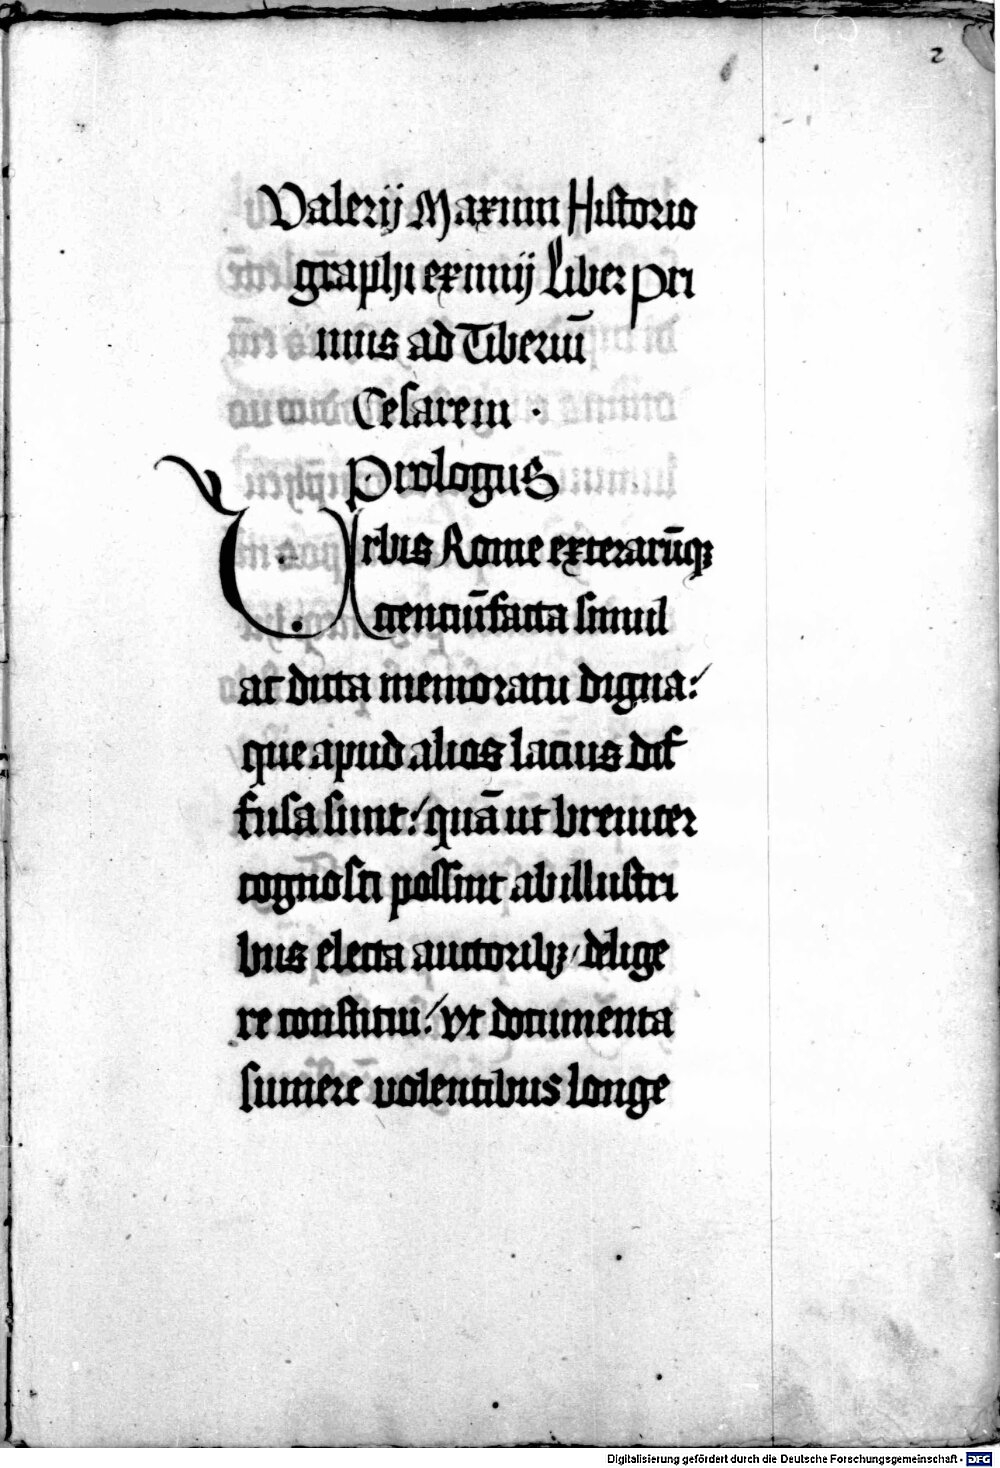 2
Valerij Maximi Historio
graphi eximij Liber Pri
mus ad Tiberiū
Cesarem .
Prologus
Urbis Rome exterarūqꝫ
gentiū facta simul
ac dicta memoratu digna:/
que apud alios latius dif
fusa sunt:/ quā ut breuiter
cognosci possint ab illustri
bus electa auctoribꝫ / delige
re constitui:/ vt documenta
sumere uolentibus longe
Digitalisierung gefördert durch die Deutsche Forschungsgemeinschaft - DFG